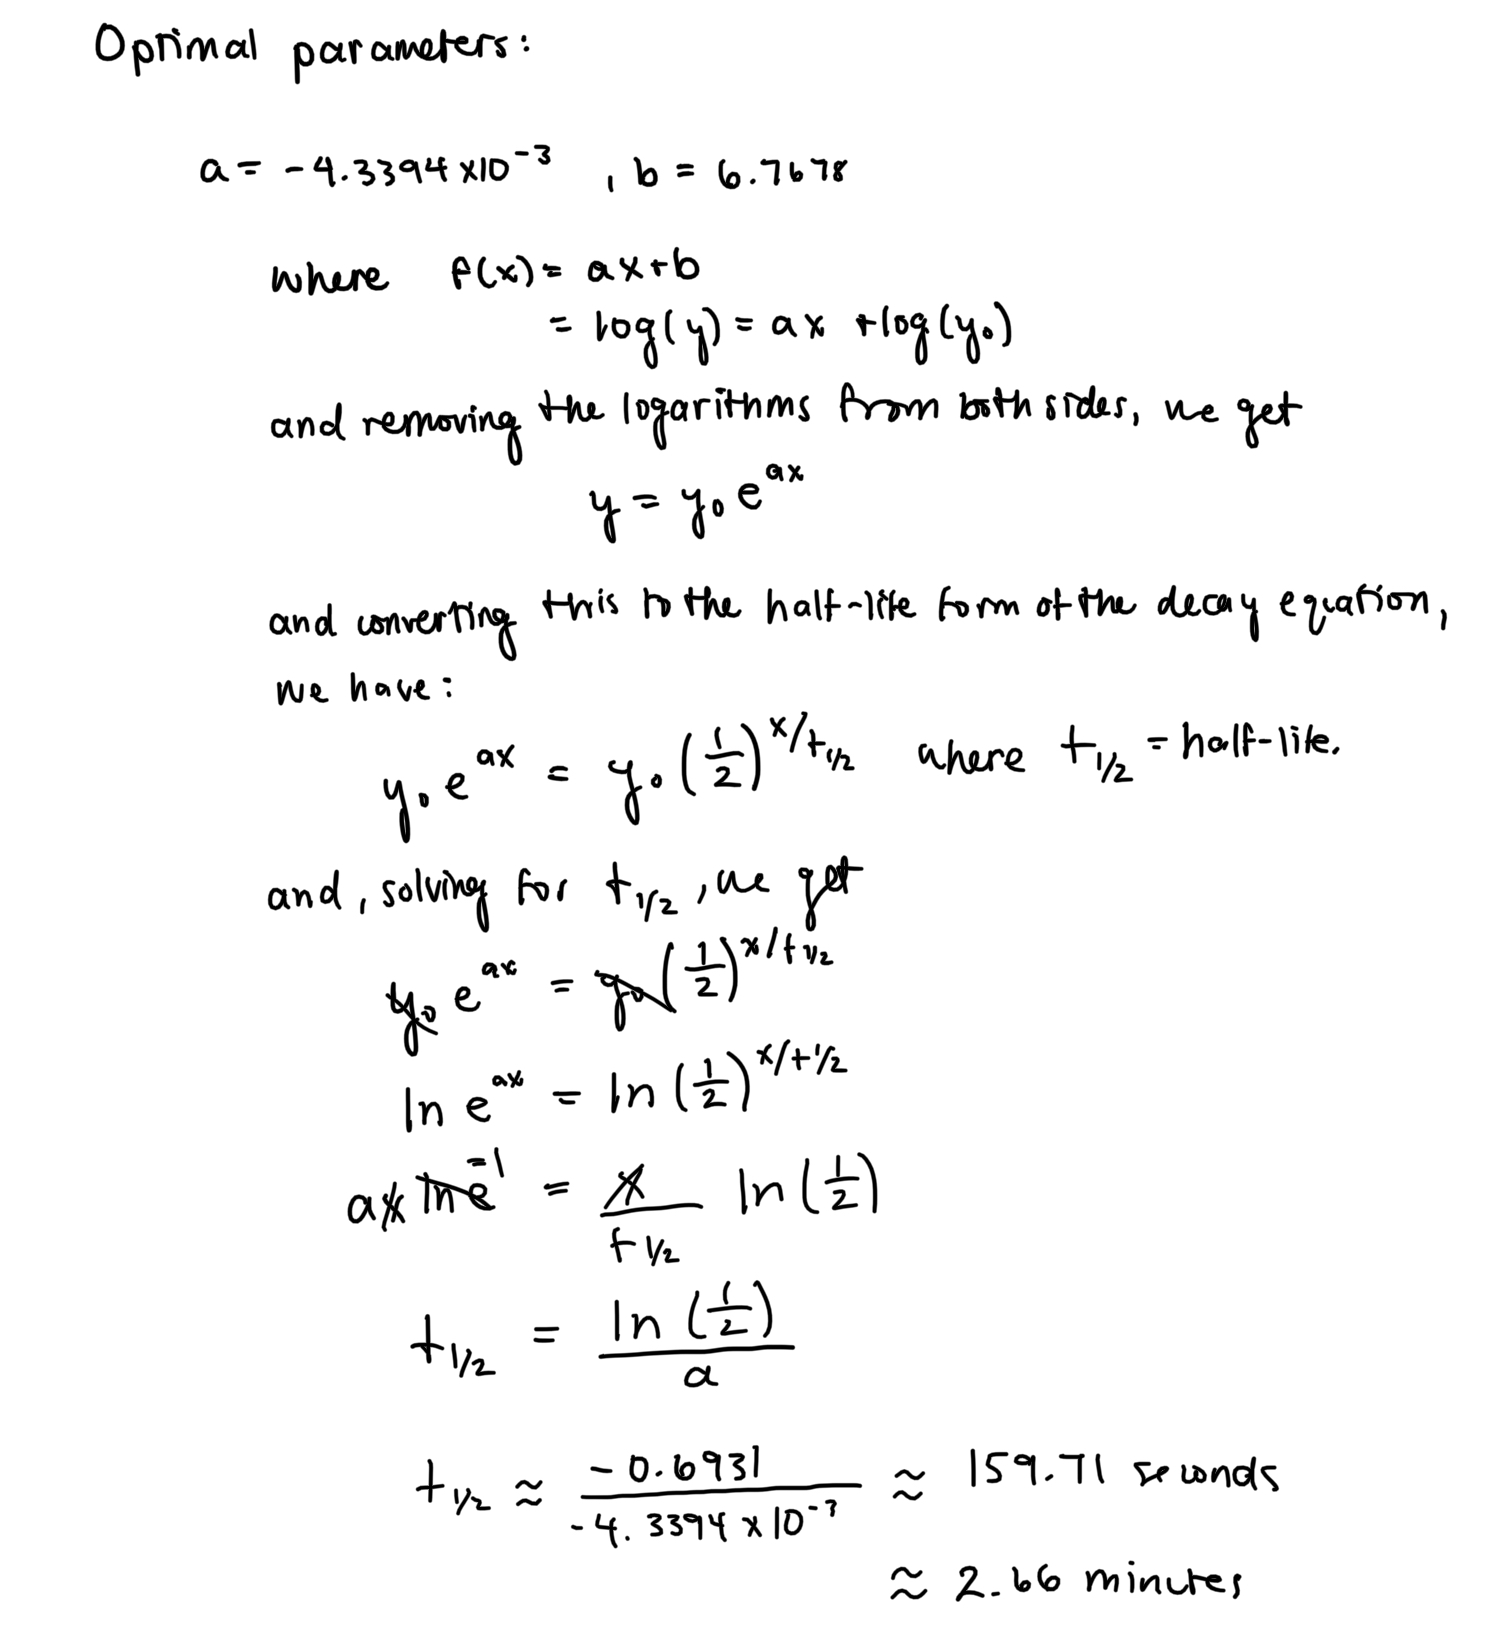 Optimal parameters:
a = -4.3394 x10^-3 , b = 6.7678
where f(x) = ax+b
= log(y) = ax + log(y₀)
and removing the logarithms from both sides, we get
y = y₀ e^ax
and converting this to the half-life form of the decay equation,
we have:
y₀ e^ax = y₀ (1/2)^x/t₁/₂ where t₁/₂ = half-life.
and, solving for t₁/₂, we get
y₀ e^ax = y₀ (1/2)^x/t₁/₂
ln e^ax = ln (1/2)^x/t₁/₂
ax ln e^=1 = x/t₁/₂ ln (1/2)
t₁/₂ = ln (1/2)/a
t₁/₂ ≈ -0.6931/-4.3394 x 10^-3 ≈ 159.71 seconds
≈ 2.66 minutes